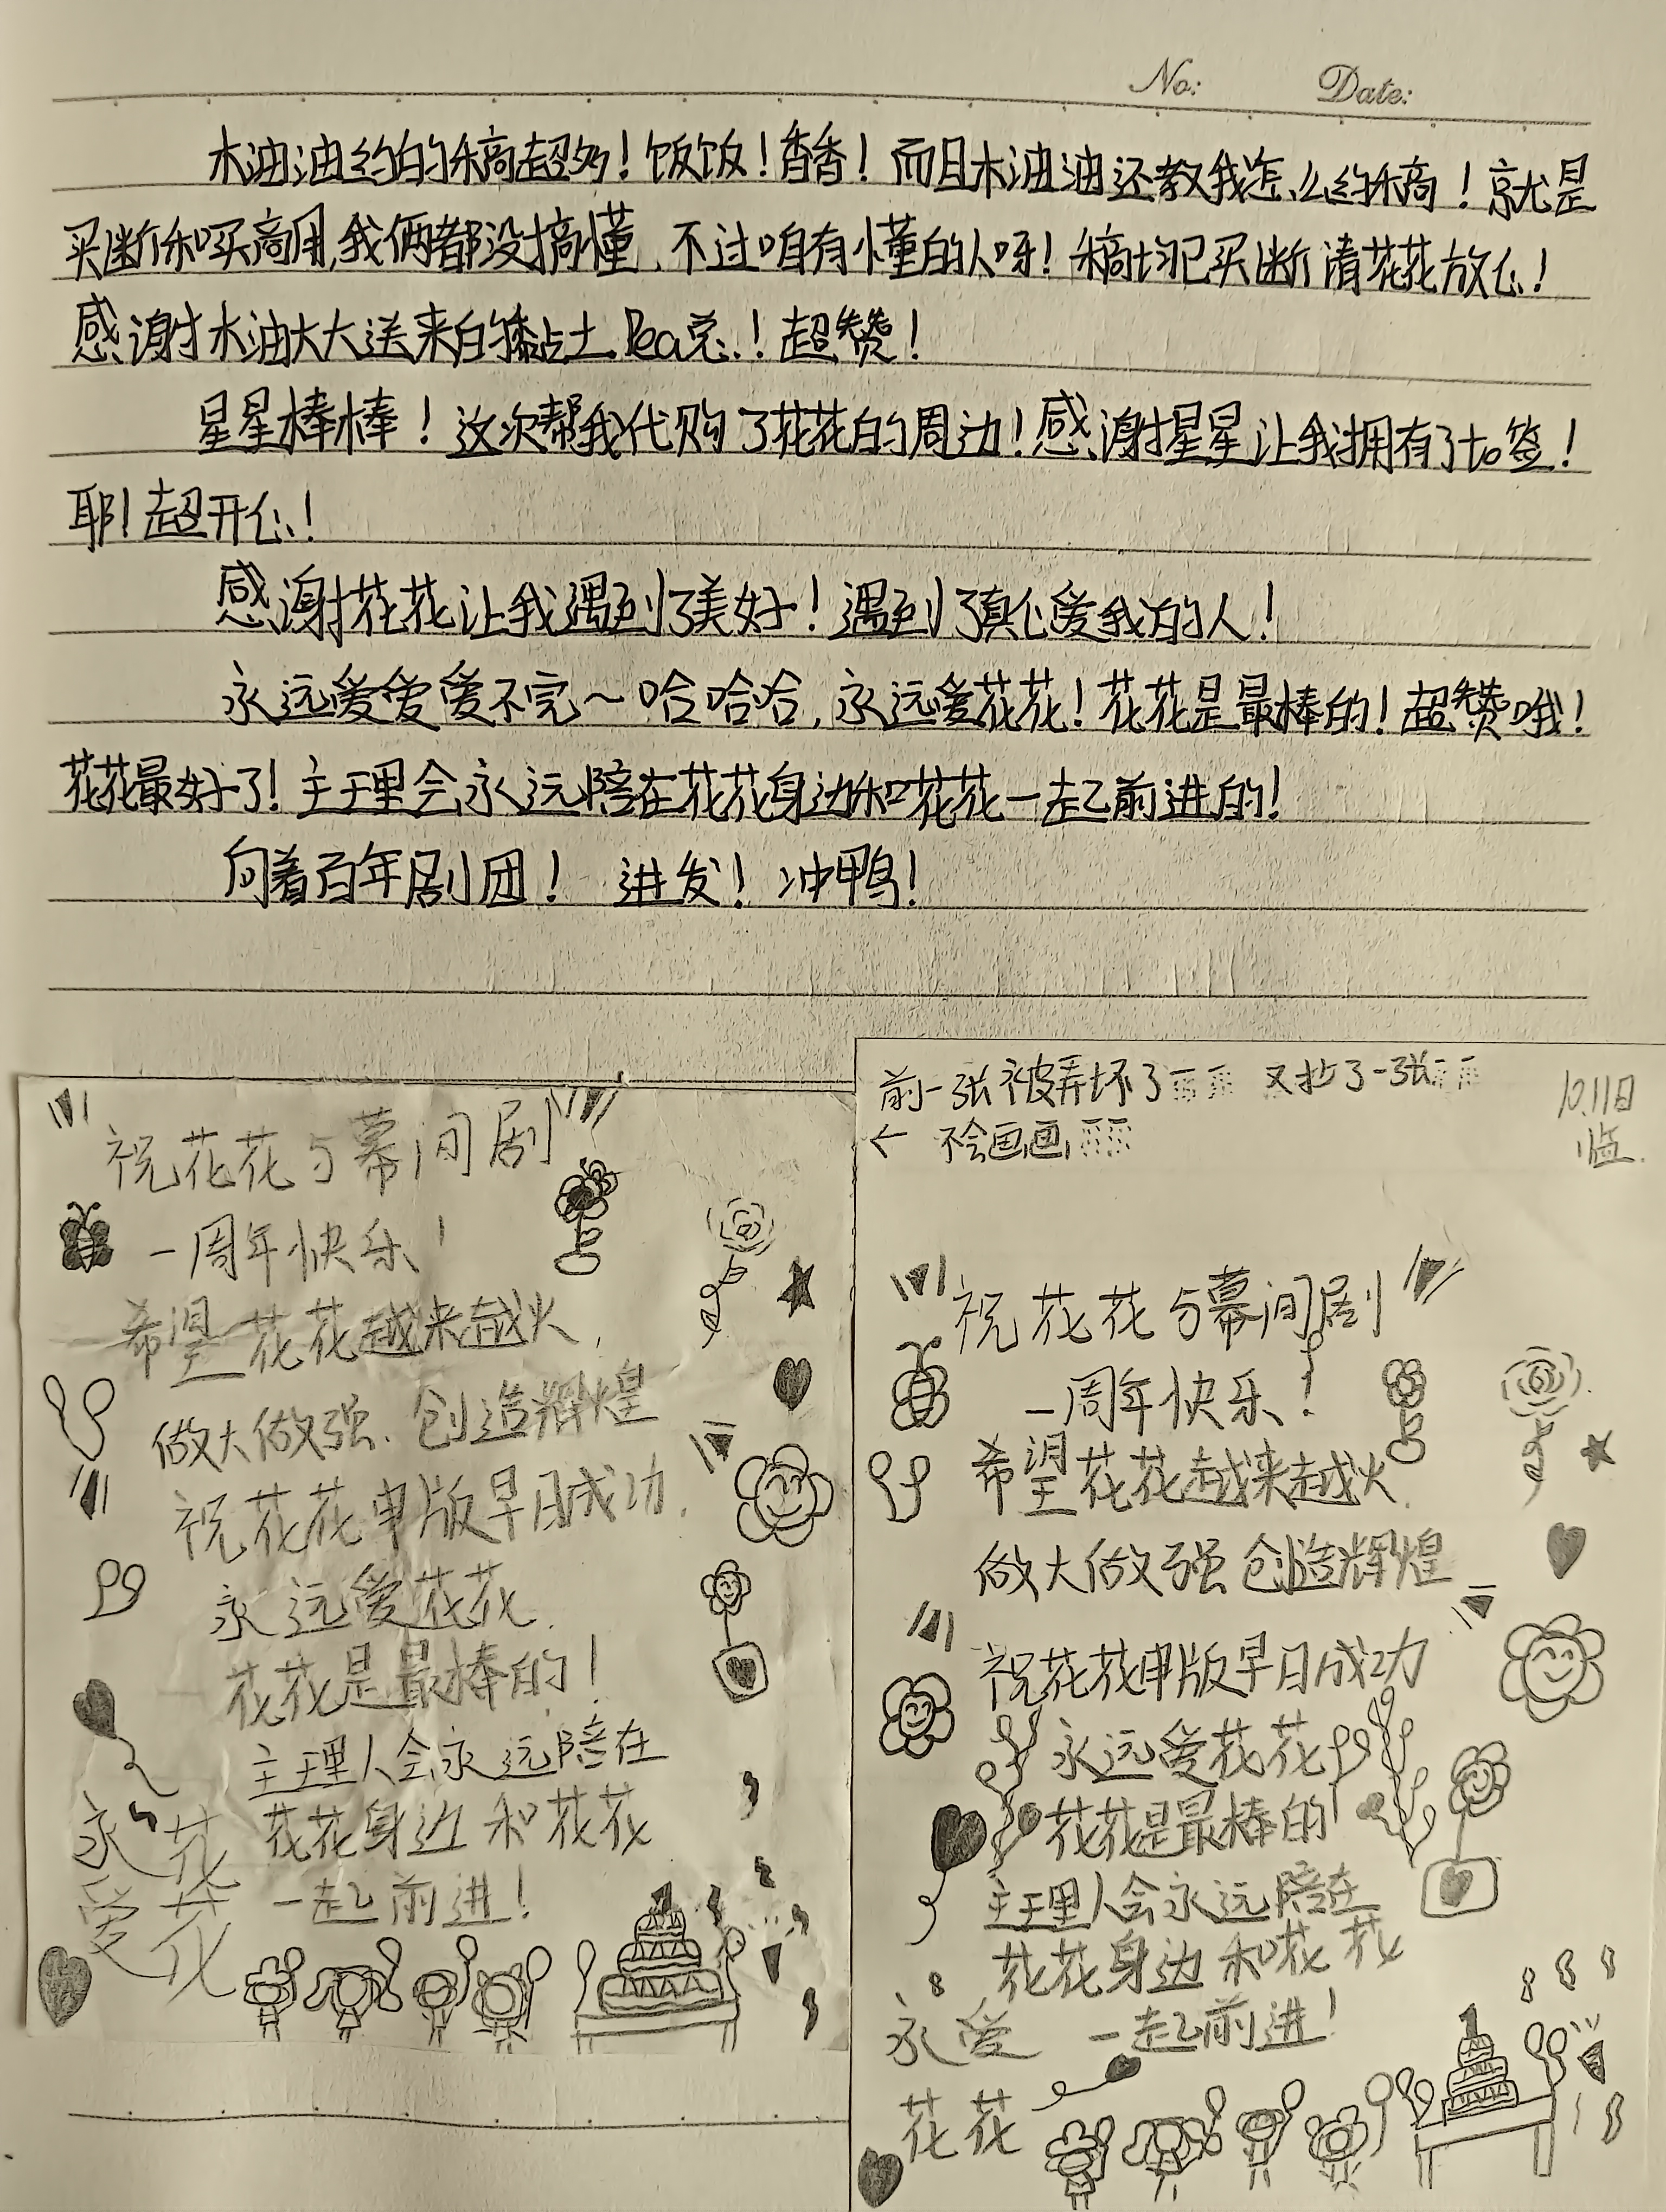 No: Date:
木油油约的稿超多！饭饭！香香！而且木油油还教我怎么约稿！就是
买断和买商用，我俩都没搞懂，不过咱有懂的人呀！稿均已买断请花花放心！
感谢木油太太送来的黏土Pea总！超赞！
星星棒棒！这次帮我代购了花花的周边！感谢星星让我拥有了to签！
耶！超开心！
感谢花花让我遇到了美好！遇到了真心爱我的人！
永远爱爱爱不完～哈哈哈，永远爱花花！花花是最棒的！超赞哦！
花花最好了！主理会永远陪在花花身边和花花一起前进的！
向着百年剧团！ 进发！冲鸭！
祝花花与幕间剧
一周年快乐！
希望花花越来越火，
做大做强、创造辉煌
祝花花申版早日成功.
永远爱花花.
花花是最棒的！
主理人会永远陪在
花花身边和花花
一起前进！
永爱
花花
前一张被弄坏了 又抄了一张
10.11日
← 不会画画
临.
祝花花与幕间剧
一周年快乐！
希望花花越来越火
做大做强创造辉煌
祝花花申版早日成功
永远爱花花
花花是最棒的
主理人会永远陪在
花花身边和花花
一起前进！
永爱
花花
1